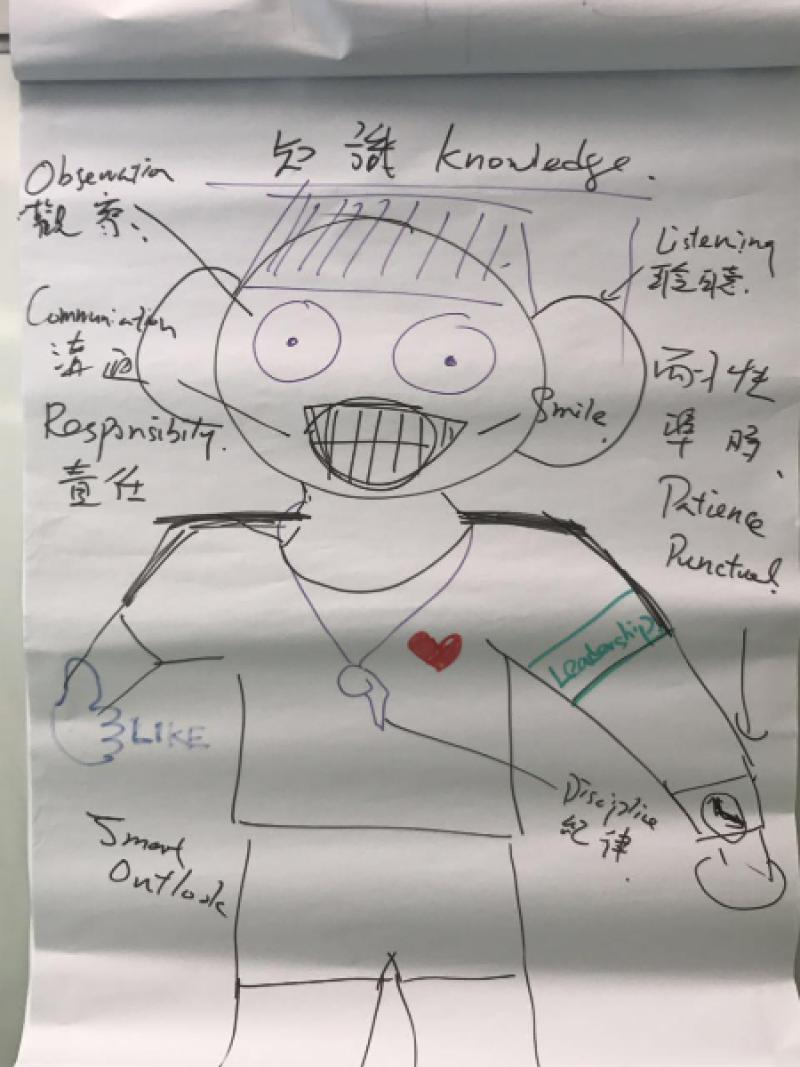 知識 Knowledge.
Observation
觀察
Listening
聆聽
Communiation
溝通
Smile
耐性
準時
Responsibity
責任
Patience
Punctual
Leadership
LIKE
Discipline
紀律
Smart
Outlook